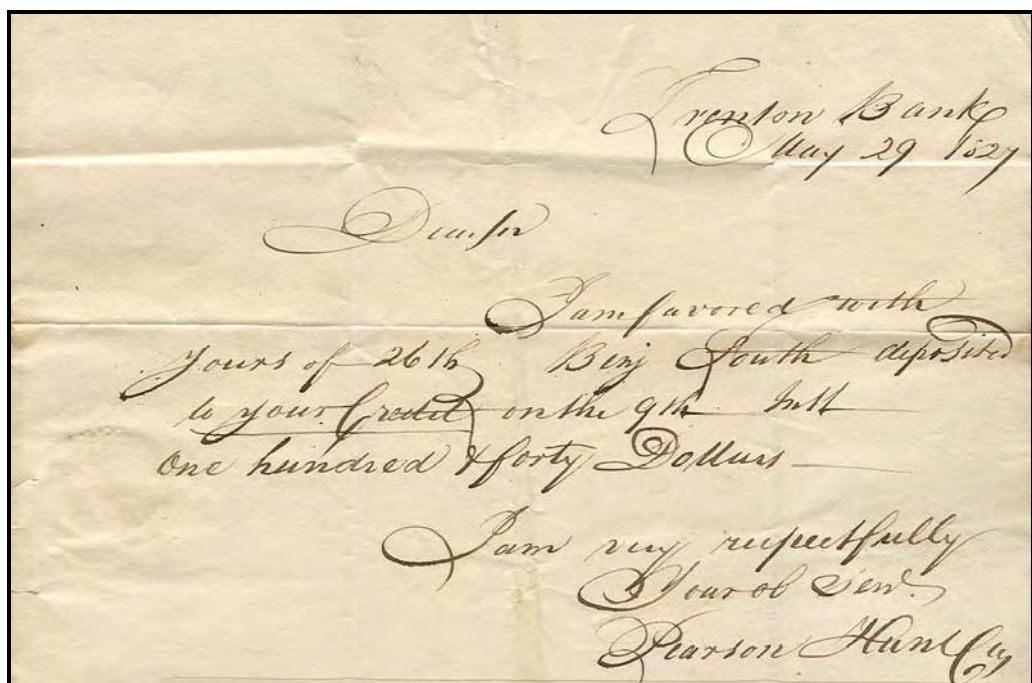 Trenton Bank
May 29 1827
Dear Sir
I am favored with
yours of 26th Benj South deposited
to your Credit on the 9th Inst
One hundred & forty Dollars
I am very respectfully
Your ob Servt.
Pearson Hunt Cas